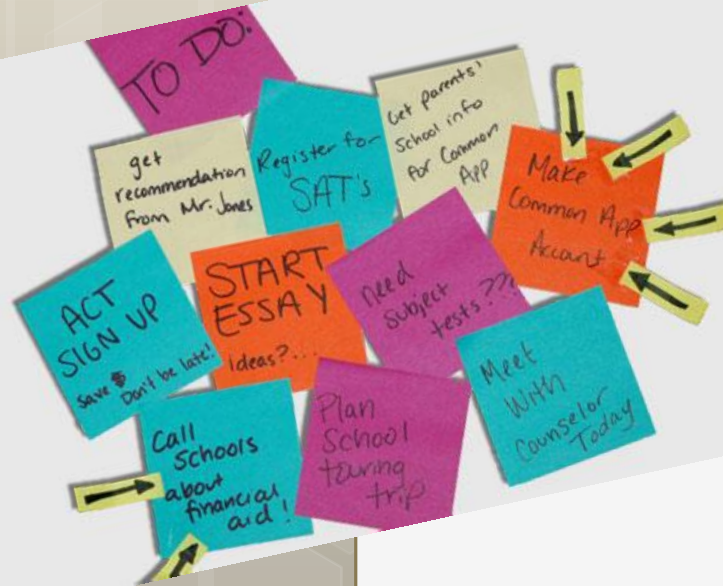 TO DO:
get
recommendation
from Mr. Jones
Register for
SAT's
Get parents'
School info
for Common
App
Make
Common App
Account
ACT
SIGN UP
Save $
Don't be late!
START
ESSAY
ideas?...
need
subject
tests???
Meet
With
Counselor
Today
Call
Schools
about
financial
aid!
Plan
School
touring
trip